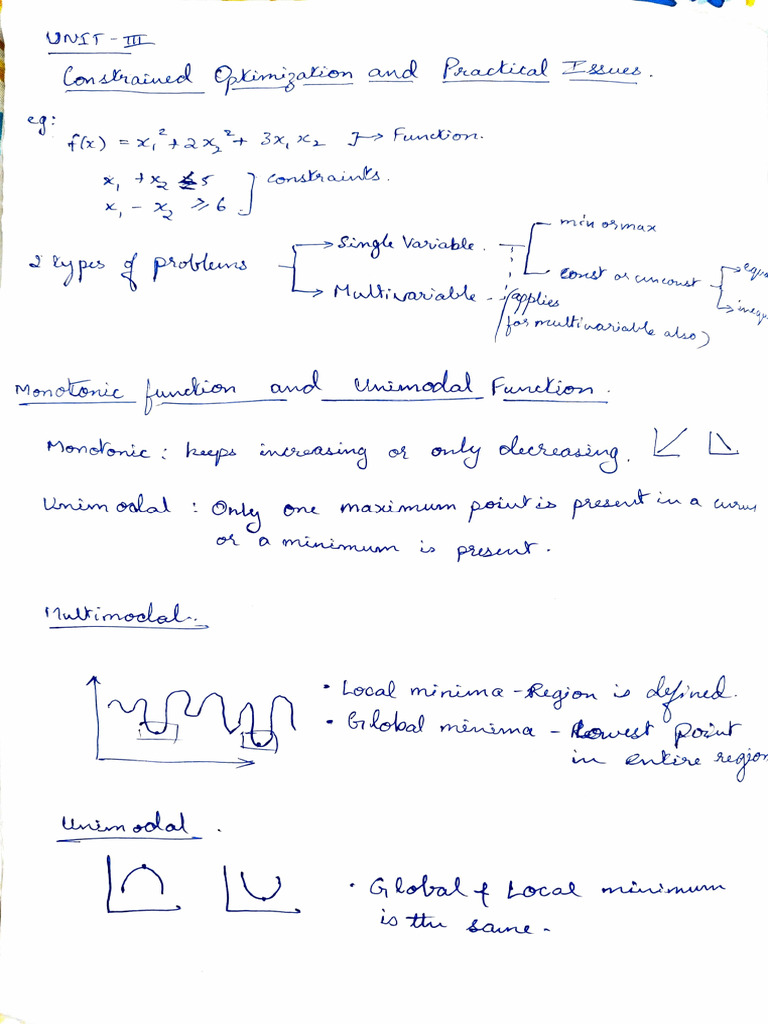 UNIT - III
Constrained Optimization and Practical Issues.
eg:
f(x) = x₁² + 2x₂² + 3x₁x₂ ]→ Function.
x₁ + x₂ ≤ 5 ] constraints.
x₁ - x₂ ≥ 6
min or max
2 types of problems → Single Variable.
const or unconst → equa
→ inequ
→ Multivariable - (applies
for multivariable also)
Monotonic function and Unimodal Function.
Monotonic : keeps increasing or only decreasing.
Unimodal : Only one maximum point is present in a curve
or a minimum is present.
Multimodal.
• Local minima - Region is defined.
• Global minima - Lowest point
in entire region
Unimodal.
• Global & Local minimum
is the same.